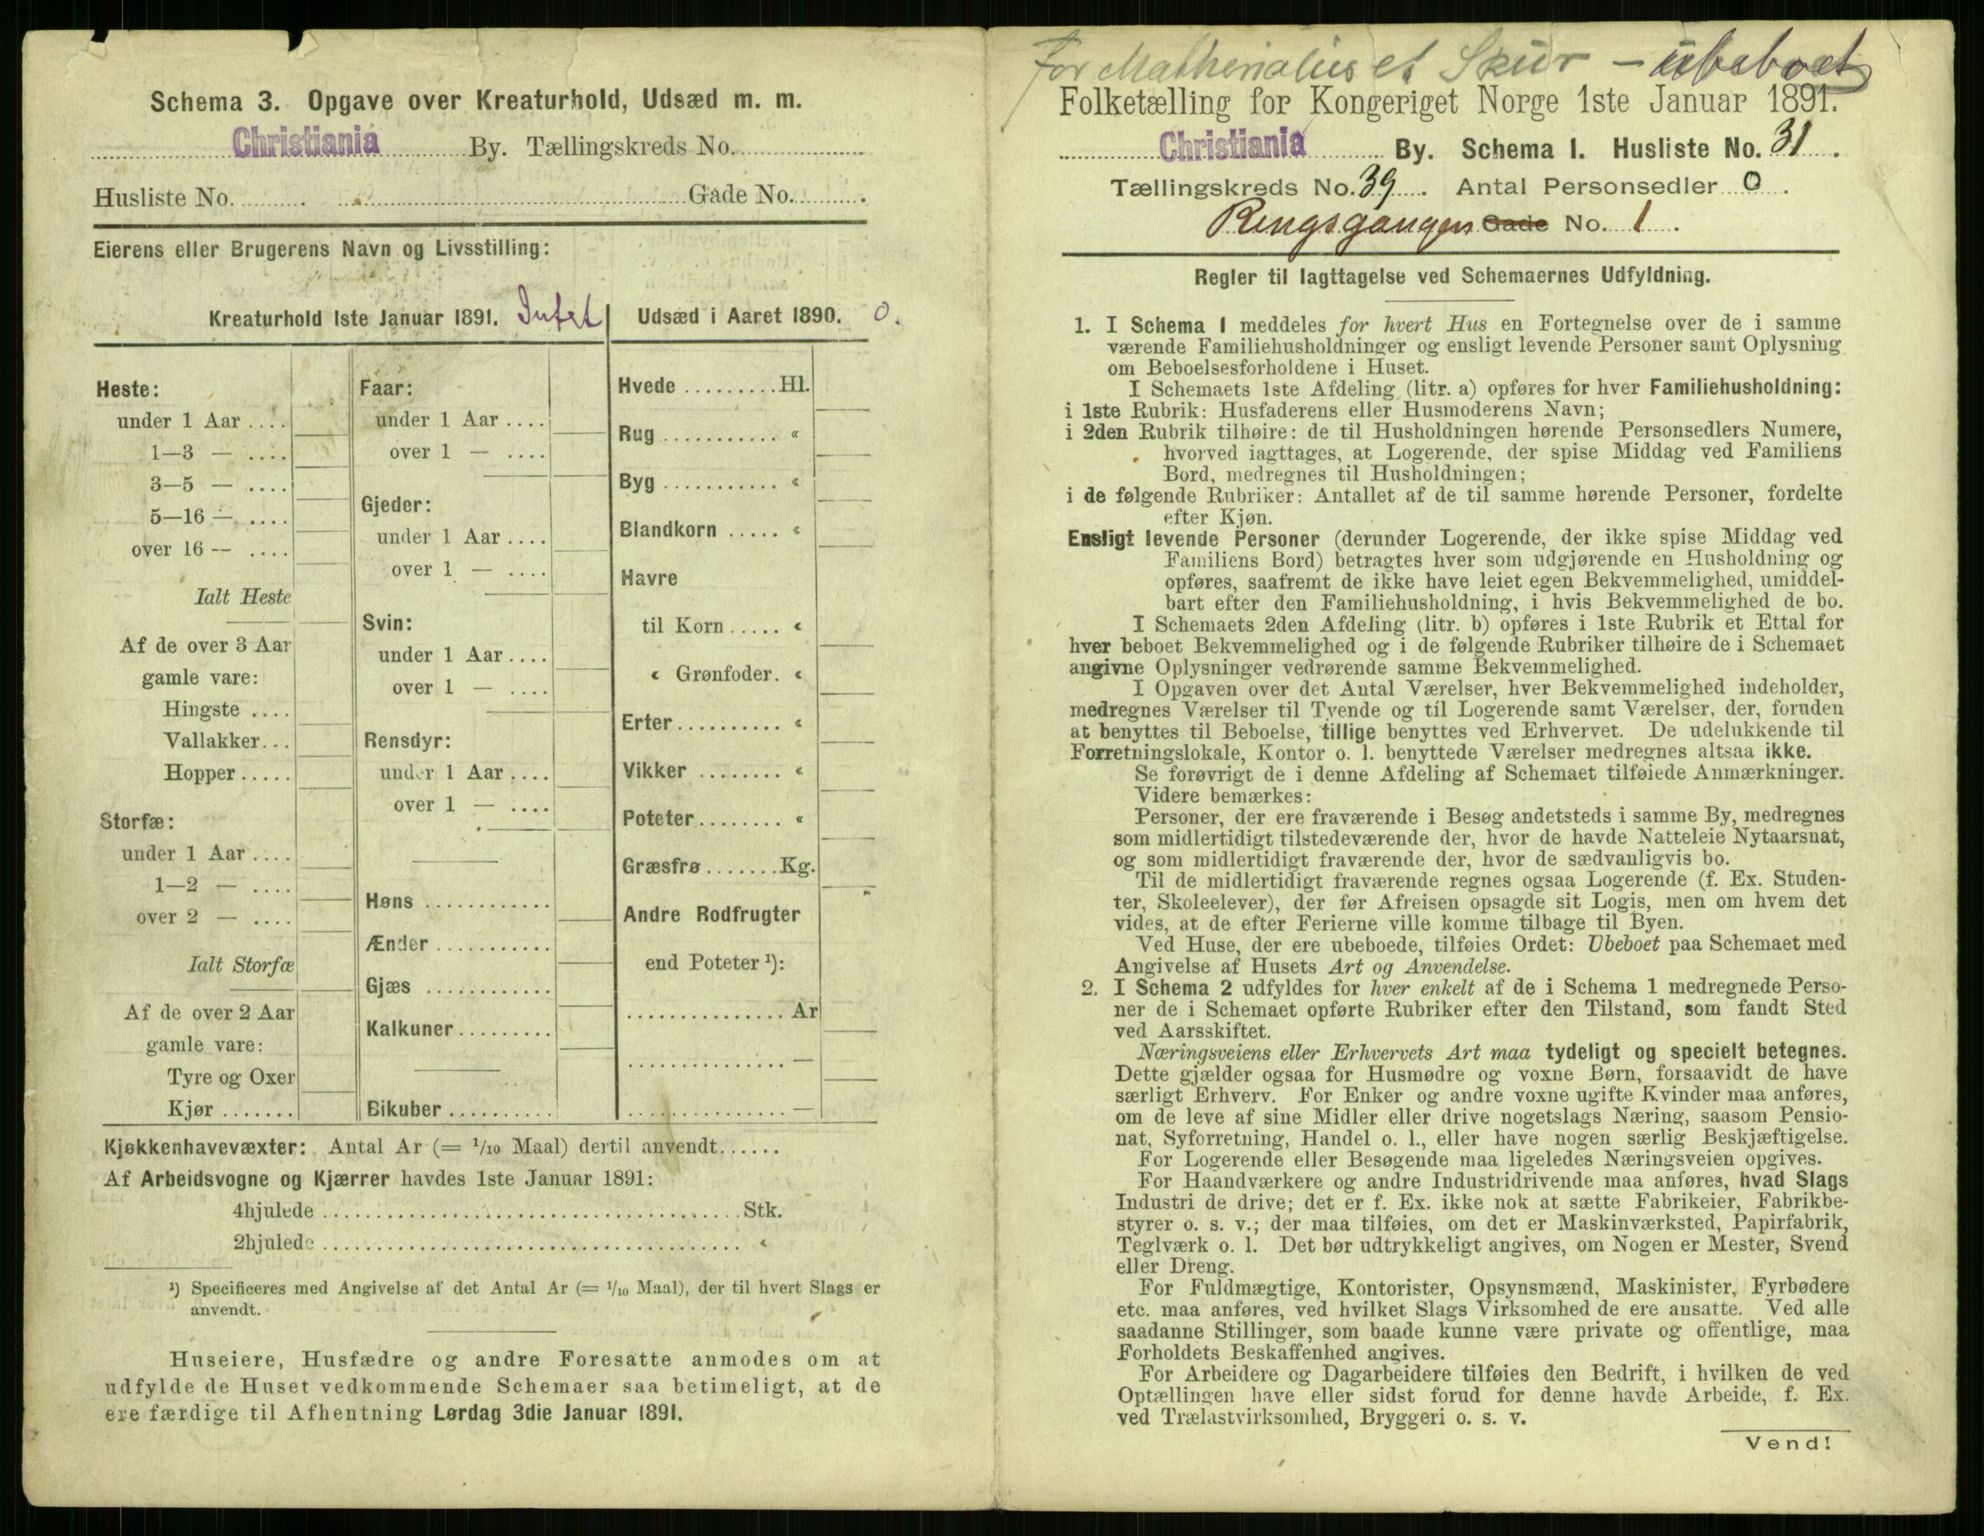 Schema 3. Opgave over Kreaturhold, Udsæd m. m.
Christiania By. Tællingskreds No.
Husliste No. Gade No.
Eierens eller Brugerens Navn og Livsstilling:
Kreaturhold 1ste Januar 1891. Intet
Heste:
under 1 Aar
1—3 —
3—5 —
5—16 —
over 16 —
Ialt Heste
Af de over 3 Aar
gamle vare:
Hingste
Vallakker
Hopper
Storfæ:
under 1 Aar
1—2 —
over 2 —
Ialt Storfæ
Af de over 2 Aar
gamle vare:
Tyre og Oxer
Kjør
Faar:
under 1 Aar
over 1 —
Gjeder:
under 1 Aar
over 1 —
Svin:
under 1 Aar
over 1 —
Rensdyr:
under 1 Aar
over 1 —
Høns
Ænder
Gjæs
Kalkuner
Bikuber
Udsæd i Aaret 1890. 0.
Hvede Hl.
Rug «
Byg «
Blandkorn «
Havre
til Korn «
« Grønfoder. «
Erter «
Vikker «
Poteter «
Græsfrø Kg.
Andre Rodfrugter
end Poteter ¹):
Ar
—
—
Kjøkkenhavevæxter: Antal Ar (= 1/10 Maal) dertil anvendt
Af Arbeidsvogne og Kjærrer havdes 1ste Januar 1891:
4hjulede Stk.
2hjulede «
¹) Specificeres med Angivelse af det Antal Ar (= 1/10 Maal), der til hvert Slags er
anvendt.
Huseiere, Husfædre og andre Foresatte anmodes om at
udfylde de Huset vedkommende Schemaer saa betimeligt, at de
ere færdige til Afhentning Lørdag 3die Januar 1891.
For et Skur - ubeboet
Folketælling for Kongeriget Norge 1ste Januar 1891.
Christiania By. Schema 1. Husliste No. 31.
Tællingskreds No. 39. Antal Personsedler 0.
Ringsgangen Gade No. 1.
Regler til Iagttagelse ved Schemaernes Udfyldning.
1. I Schema 1 meddeles for hvert Hus en Fortegnelse over de i samme
værende Familiehusholdninger og ensligt levende Personer samt Oplysning
om Beboelsesforholdene i Huset.
I Schemaets 1ste Afdeling (litr. a) opføres for hver Familiehusholdning:
i 1ste Rubrik: Husfaderens eller Husmoderens Navn;
i 2den Rubrik tilhøire: de til Husholdningen hørende Personsedlers Numere,
hvorved iagttages, at Logerende, der spise Middag ved Familiens
Bord, medregnes til Husholdningen;
i de følgende Rubriker: Antallet af de til samme hørende Personer, fordelte
efter Kjøn.
Ensligt levende Personer (derunder Logerende, der ikke spise Middag ved
Familiens Bord) betragtes hver som udgjørende en Husholdning og
opføres, saafremt de ikke have leiet egen Bekvemmelighed, umiddel-
bart efter den Familiehusholdning, i hvis Bekvemmelighed de bo.
I Schemaets 2den Afdeling (litr. b) opføres i 1ste Rubrik et Ettal for
hver beboet Bekvemmelighed og i de følgende Rubriker tilhøire de i Schemaet
angivne Oplysninger vedrørende samme Bekvemmelighed.
I Opgaven over det Antal Værelser, hver Bekvemmelighed indeholder,
medregnes Værelser til Tyende og til Logerende samt Værelser, der, foruden
at benyttes til Beboelse, tillige benyttes ved Erhvervet. De udelukkende til
Forretningslokale, Kontor o. l. benyttede Værelser medregnes altsaa ikke.
Se forøvrigt de i denne Afdeling af Schemaet tilføiede Anmærkninger.
Videre bemærkes:
Personer, der ere fraværende i Besøg andetsteds i samme By, medregnes
som midlertidigt tilstedeværende der, hvor de havde Natteleie Nytaarsnat,
og som midlertidigt fraværende der, hvor de sædvanligvis bo.
Til de midlertidigt fraværende regnes ogsaa Logerende (f. Ex. Studen-
ter, Skoleelever), der før Afreisen opsagde sit Logis, men om hvem det
vides, at de efter Ferierne ville komme tilbage til Byen.
Ved Huse, der ere ubeboede, tilføies Ordet: Ubeboet paa Schemaet med
Angivelse af Husets Art og Anvendelse.
2. I Schema 2 udfyldes for hver enkelt af de i Schema 1 medregnede Perso-
ner de i Schemaet opførte Rubriker efter den Tilstand, som fandt Sted
ved Aarsskiftet.
Næringsveiens eller Erhvervets Art maa tydeligt og specielt betegnes.
Dette gjælder ogsaa for Husmødre og voxne Børn, forsaavidt de have
særligt Erhverv. For Enker og andre voxne ugifte Kvinder maa anføres,
om de leve af sine Midler eller drive nogetslags Næring, saasom Pensio-
nat, Syforretning, Handel o. l., eller have nogen særlig Beskjæftigelse.
For Logerende eller Besøgende maa ligeledes Næringsveien opgives.
For Haandværkere og andre Industridrivende maa anføres, hvad Slags
Industri de drive; det er f. Ex. ikke nok at sætte Fabrikeier, Fabrikbe-
styrer o. s. v.; der maa tilføies, om det er Maskinværksted, Papirfabrik,
Teglværk o. l. Det bør udtrykkeligt angives, om Nogen er Mester, Svend
eller Dreng.
For Fuldmægtige, Kontorister, Opsynsmænd, Maskinister, Fyrbødere
etc. maa anføres, ved hvilket Slags Virksomhed de ere ansatte. Ved alle
saadanne Stillinger, som baade kunne være private og offentlige, maa
Forholdets Beskaffenhed angives.
For Arbeidere og Dagarbeidere tilføies den Bedrift, i hvilken de ved
Optællingen have eller sidst forud for denne havde Arbeide, f. Ex.
ved Trælastvirksomhed, Bryggeri o. s. v.
Vend!